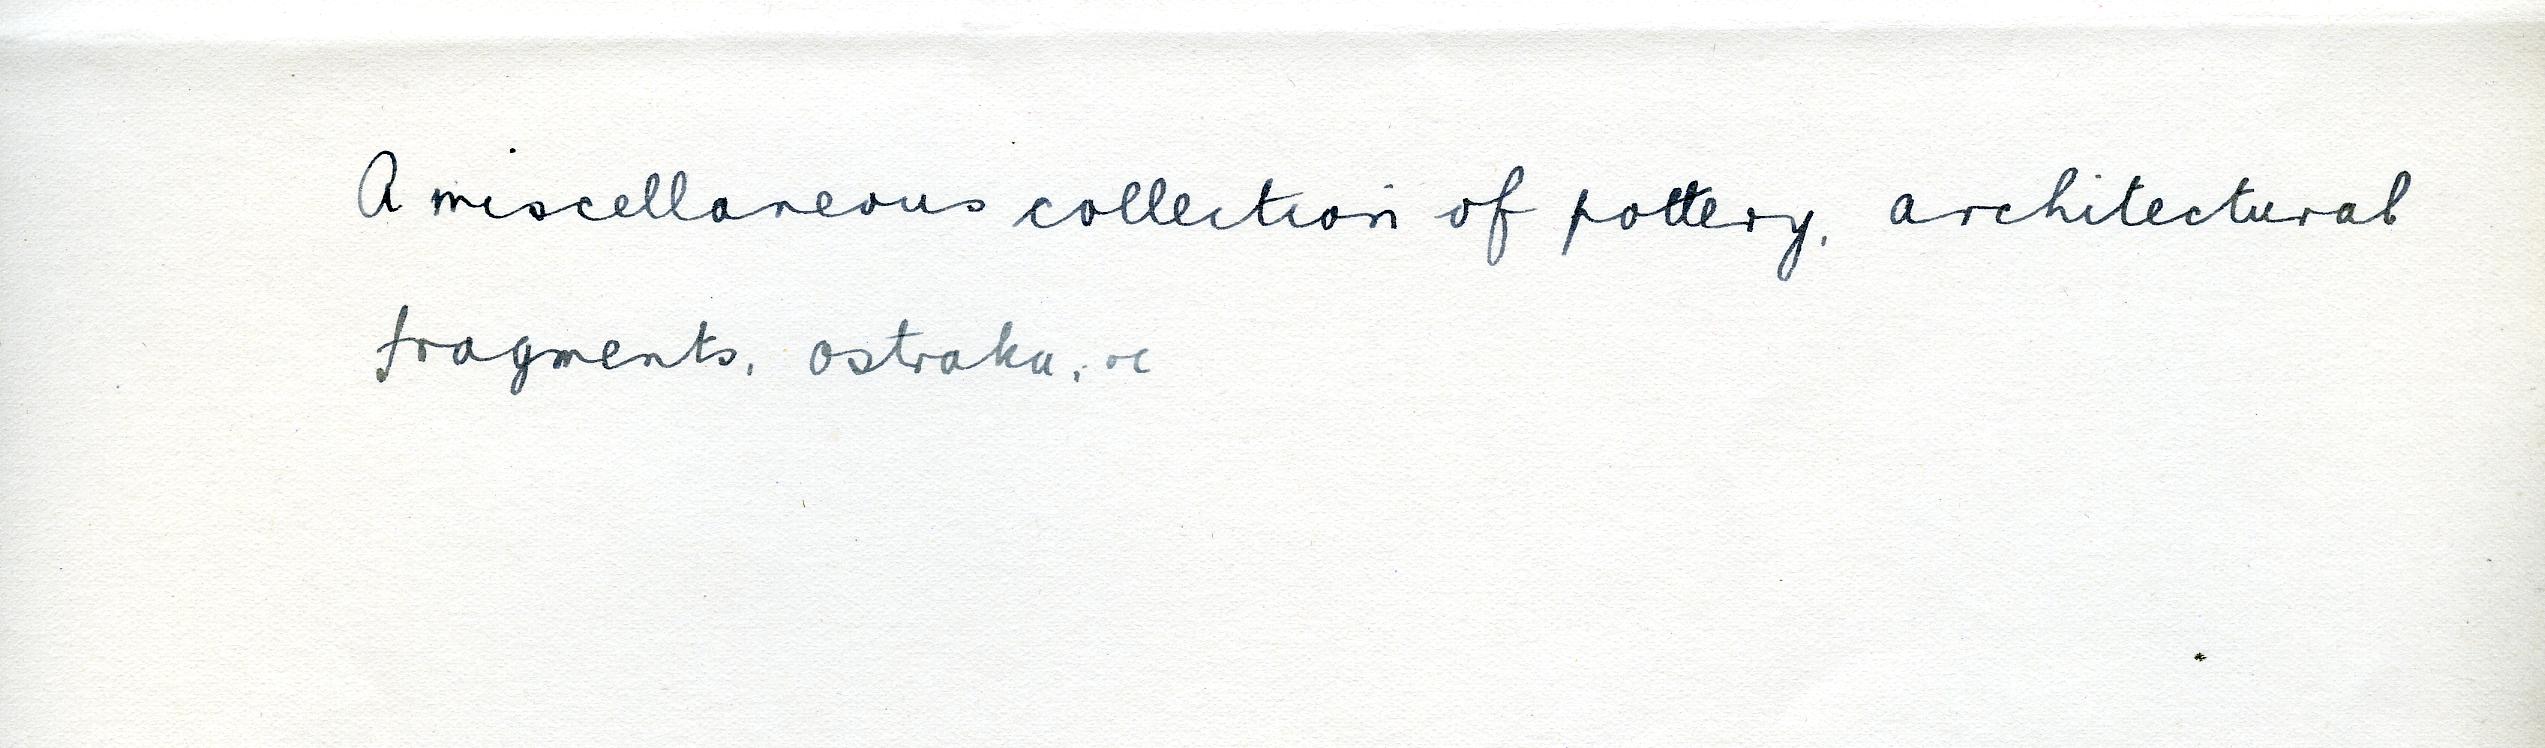 A miscellaneous collection of pottery, architectural
fragments, ostraka,